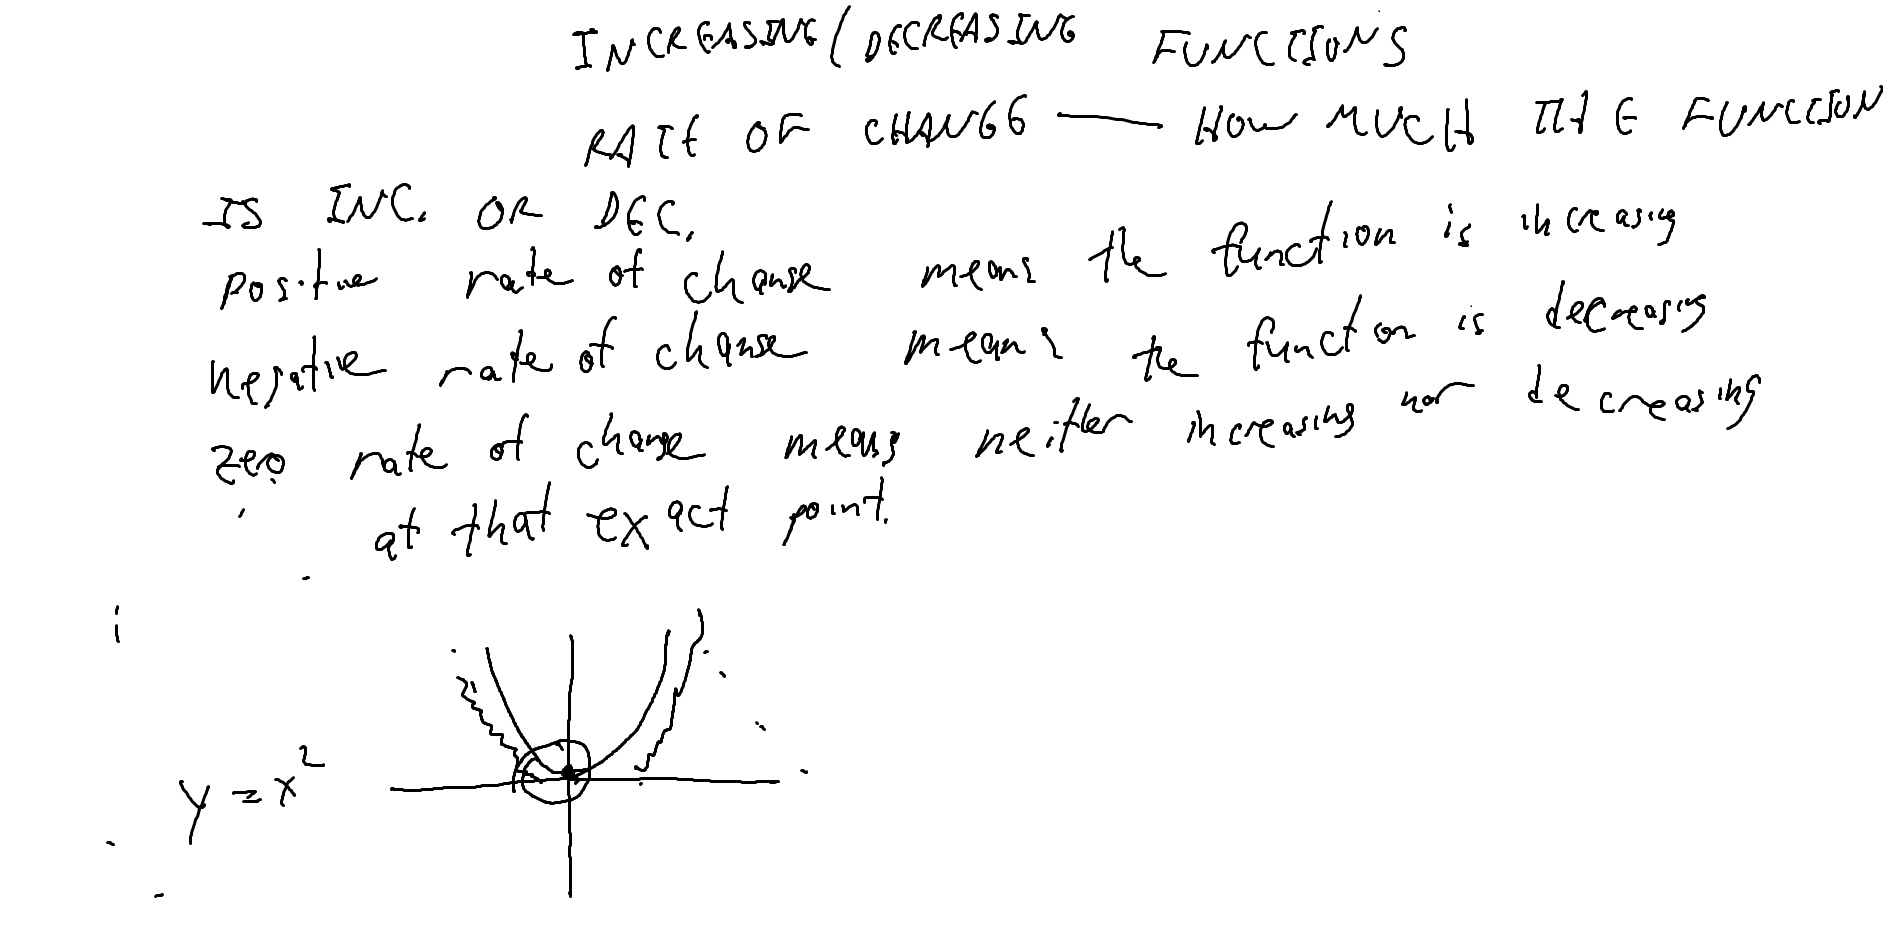 INCREASING/DECREASING FUNCTIONS
RATE OF CHANGE — HOW MUCH THE FUNCTION
IS INC. OR DEC.
positive rate of change means the function is increasing
negative rate of change means the function is decreasing
zero rate of change means neither increasing nor decreasing
at that exact point.
y = x²